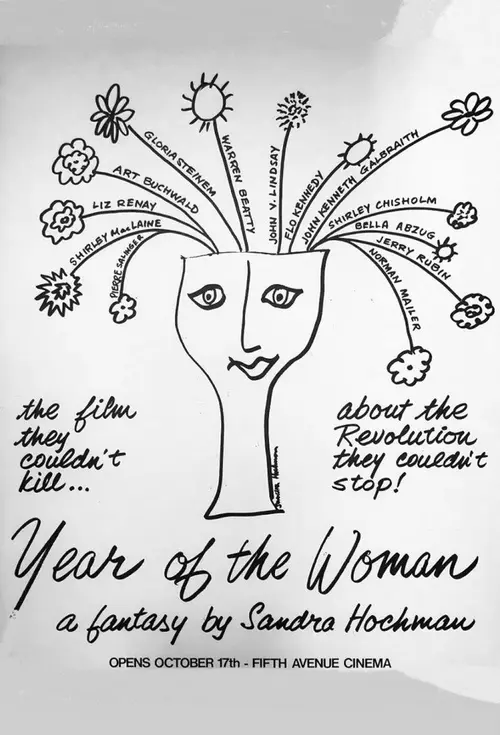 GLORIA STEINEM
WARREN BEATTY
JOHN V. LINDSAY
FLO KENNEDY
JOHN KENNETH GALBRAITH
ART BUCHWALD
LIZ RENAY
SHIRLEY MacLAINE
PIERRE SALINGER
SHIRLEY CHISHOLM
BELLA ABZUG
JERRY RUBIN
NORMAN MAILER
the film
they
couldn't
kill...
about the
Revolution
they couldn't
stop!
Sandra Hochman
Year of the Woman
a fantasy by Sandra Hochman
OPENS OCTOBER 17th - FIFTH AVENUE CINEMA